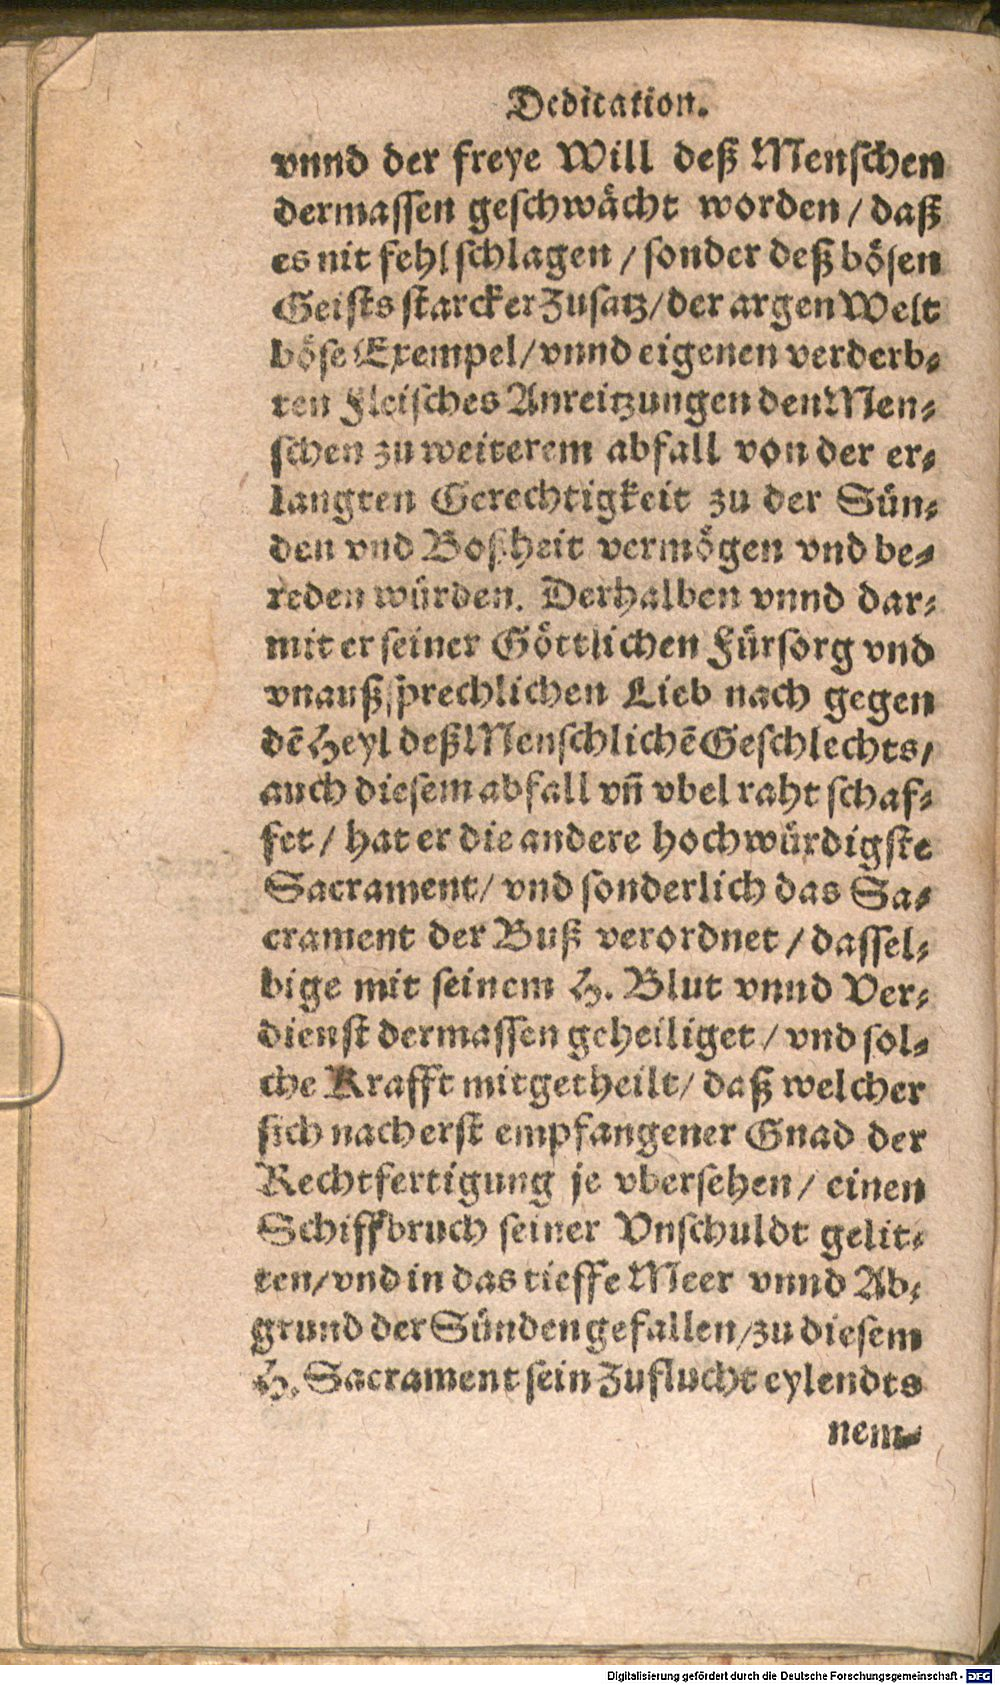 Dedication.
vnnd der freye Will deß Menschen
dermassen geschwächt worden / daß
es nit fehl schlagen / sonder deß bösen
Geists starcker Zusatz / der argen Welt
böse Exempel / vnnd eigenen verderb-
ten Fleisches Anreitzungen den Men-
schen zu weiterem abfall von der er-
langten Gerechtigkeit zu der Sün-
den vnd Boßheit vermögen vnd be-
reden würden. Derhalben vnnd dar-
mit er seiner Göttlichen Fürsorg vnd
vnaußsprechlichen Lieb nach gegen
dē Heyl deß Menschlichē Geschlechts /
auch diesem abfall vñ vbel raht schaf-
fet / hat er die andere hochwürdigste
Sacrament / vnd sonderlich das Sa-
crament der Buß verordnet / dassel-
bige mit seinem H. Blut vnnd Ver-
dienst dermassen geheiliget / vnd sol-
che Krafft mitgetheilt / daß welcher
sich nach erst empfangener Gnad der
Rechtfertigung je vbersehen / einen
Schiffbruch seiner Vnschuldt gelit-
ten / vnd in das tieffe Meer vnnd Ab-
grund der Sünden gefallen / zu diesem
H. Sacrament sein Zuflucht eylendts
nem-
Digitalisierung gefördert durch die Deutsche Forschungsgemeinschaft - DFG